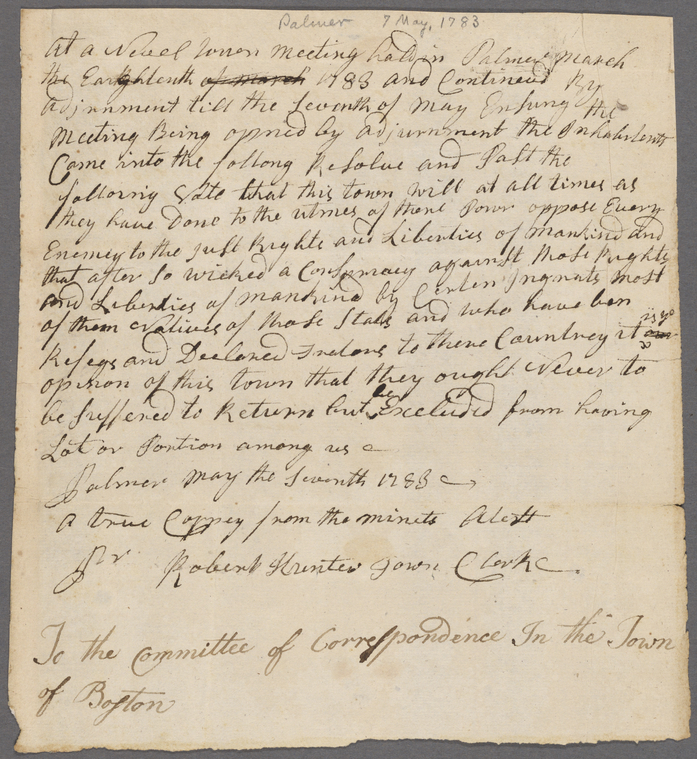 Palmer 7 May, 1783
At a Leuel Town Meeting hald in Palmer March
the Eaightenth of march 1783 and Continued By
adjrnment till the Seventh of May Ensuing the
Meeting Being opned by adjurnment the Inhabitents
Came into the follong Resolve and Past the
following Vote that this town will at all times as
they have Done to the utmes of there Powr oppose Every
Enemey to the Just Rights and Liberties of mankind and
that after So wicked a Conspiracy against those Rights
and Liberties of mankind by Certen Ingrats most
of them Natives of those Stats and who have ben
Refegs and Declared Traters to there Countrey it is ye
opinion of this town that they ought Never to
be Suffered to Return but be Excluded from having
Lot or Portion among us
Palmer May the Seventh 1783
A true Coppey from the minets Atest
Pr Robert Hunter Town Clerk
To the Committee of Correspondence In the Town
of Boston